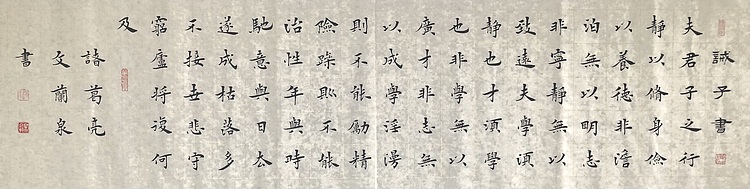 誡子書
夫君子之行
靜以脩身儉
以養德非澹
泊無以明志
非寧靜無以
致遠夫學須
靜也才須學
也非學無以
廣才非志無
以成學淫漫
則不能勵精
險躁則不能
治性年與時
馳意與日去
遂成枯落多
不接世悲守
窮廬將復何
及
諸葛亮
文蘭泉
書